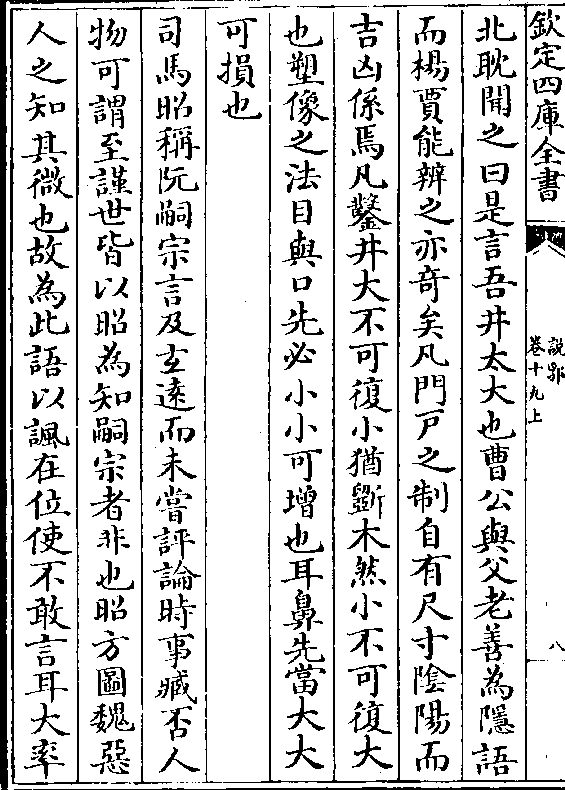 欽定四庫全書
說郛
卷十九上
八
北耽聞之曰是言吾井太大也曹公與父老善為隱語
而楊賈能辨之亦奇矣凡門戸之制自有尺寸陰陽而
吉凶係焉凡鑿井大不可復小猶斵木然小不可復大
也塑像之法目與口先必小小可增也耳鼻先當大大
可損也
司馬昭稱阮嗣宗言及玄遠而未嘗評論時事臧否人
物可謂至謹世皆以昭為知嗣宗者非也昭方圖魏惡
人之知其微也故為此語以諷在位使不敢言耳大率